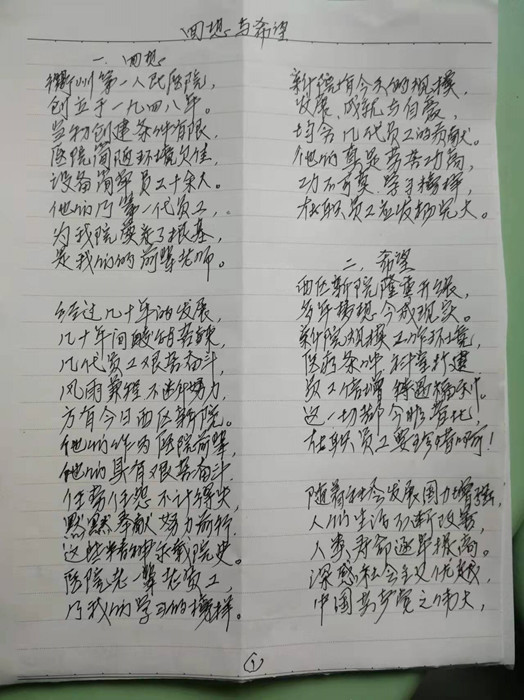 回想与希望
一、回想
衢州第一人民医院,
创立于一九四八年。
当初创建条件有限,
医院简陋环境欠佳,
设备简单员工十余人。
他们乃第一代员工,
为我院奠定了根基,
是我们的前辈老师。
经过几十年的发展,
几十年间酸甜苦辣,
几代员工艰苦奋斗,
风雨兼程不断努力,
方有今日西区新院。
他们作为医院前辈,
他们具有艰苦奋斗
任劳任怨不计得失
默默奉献努力前行
这些精神永载院史。
医院老一辈老员工,
乃我们学习的榜样。
新院有今天的规模,
发展、成就与自豪,
均含几代员工的贡献。
他们真是劳苦功高,
功不可莫学习榜样,
在职员工应发扬光大。
二、希望
西区新院隆重开张,
多年梦想今成现实。
新院规模工作环境,
医疗条件科室扩建
员工倍增待遇福利。
这一切都今非昔比,
在职员工要珍惜啊!
随着社会发展国力增强,
人们生活不断改善,
人类寿命逐年提高。
深感社会主义优越,
中国共产党之伟大,
1